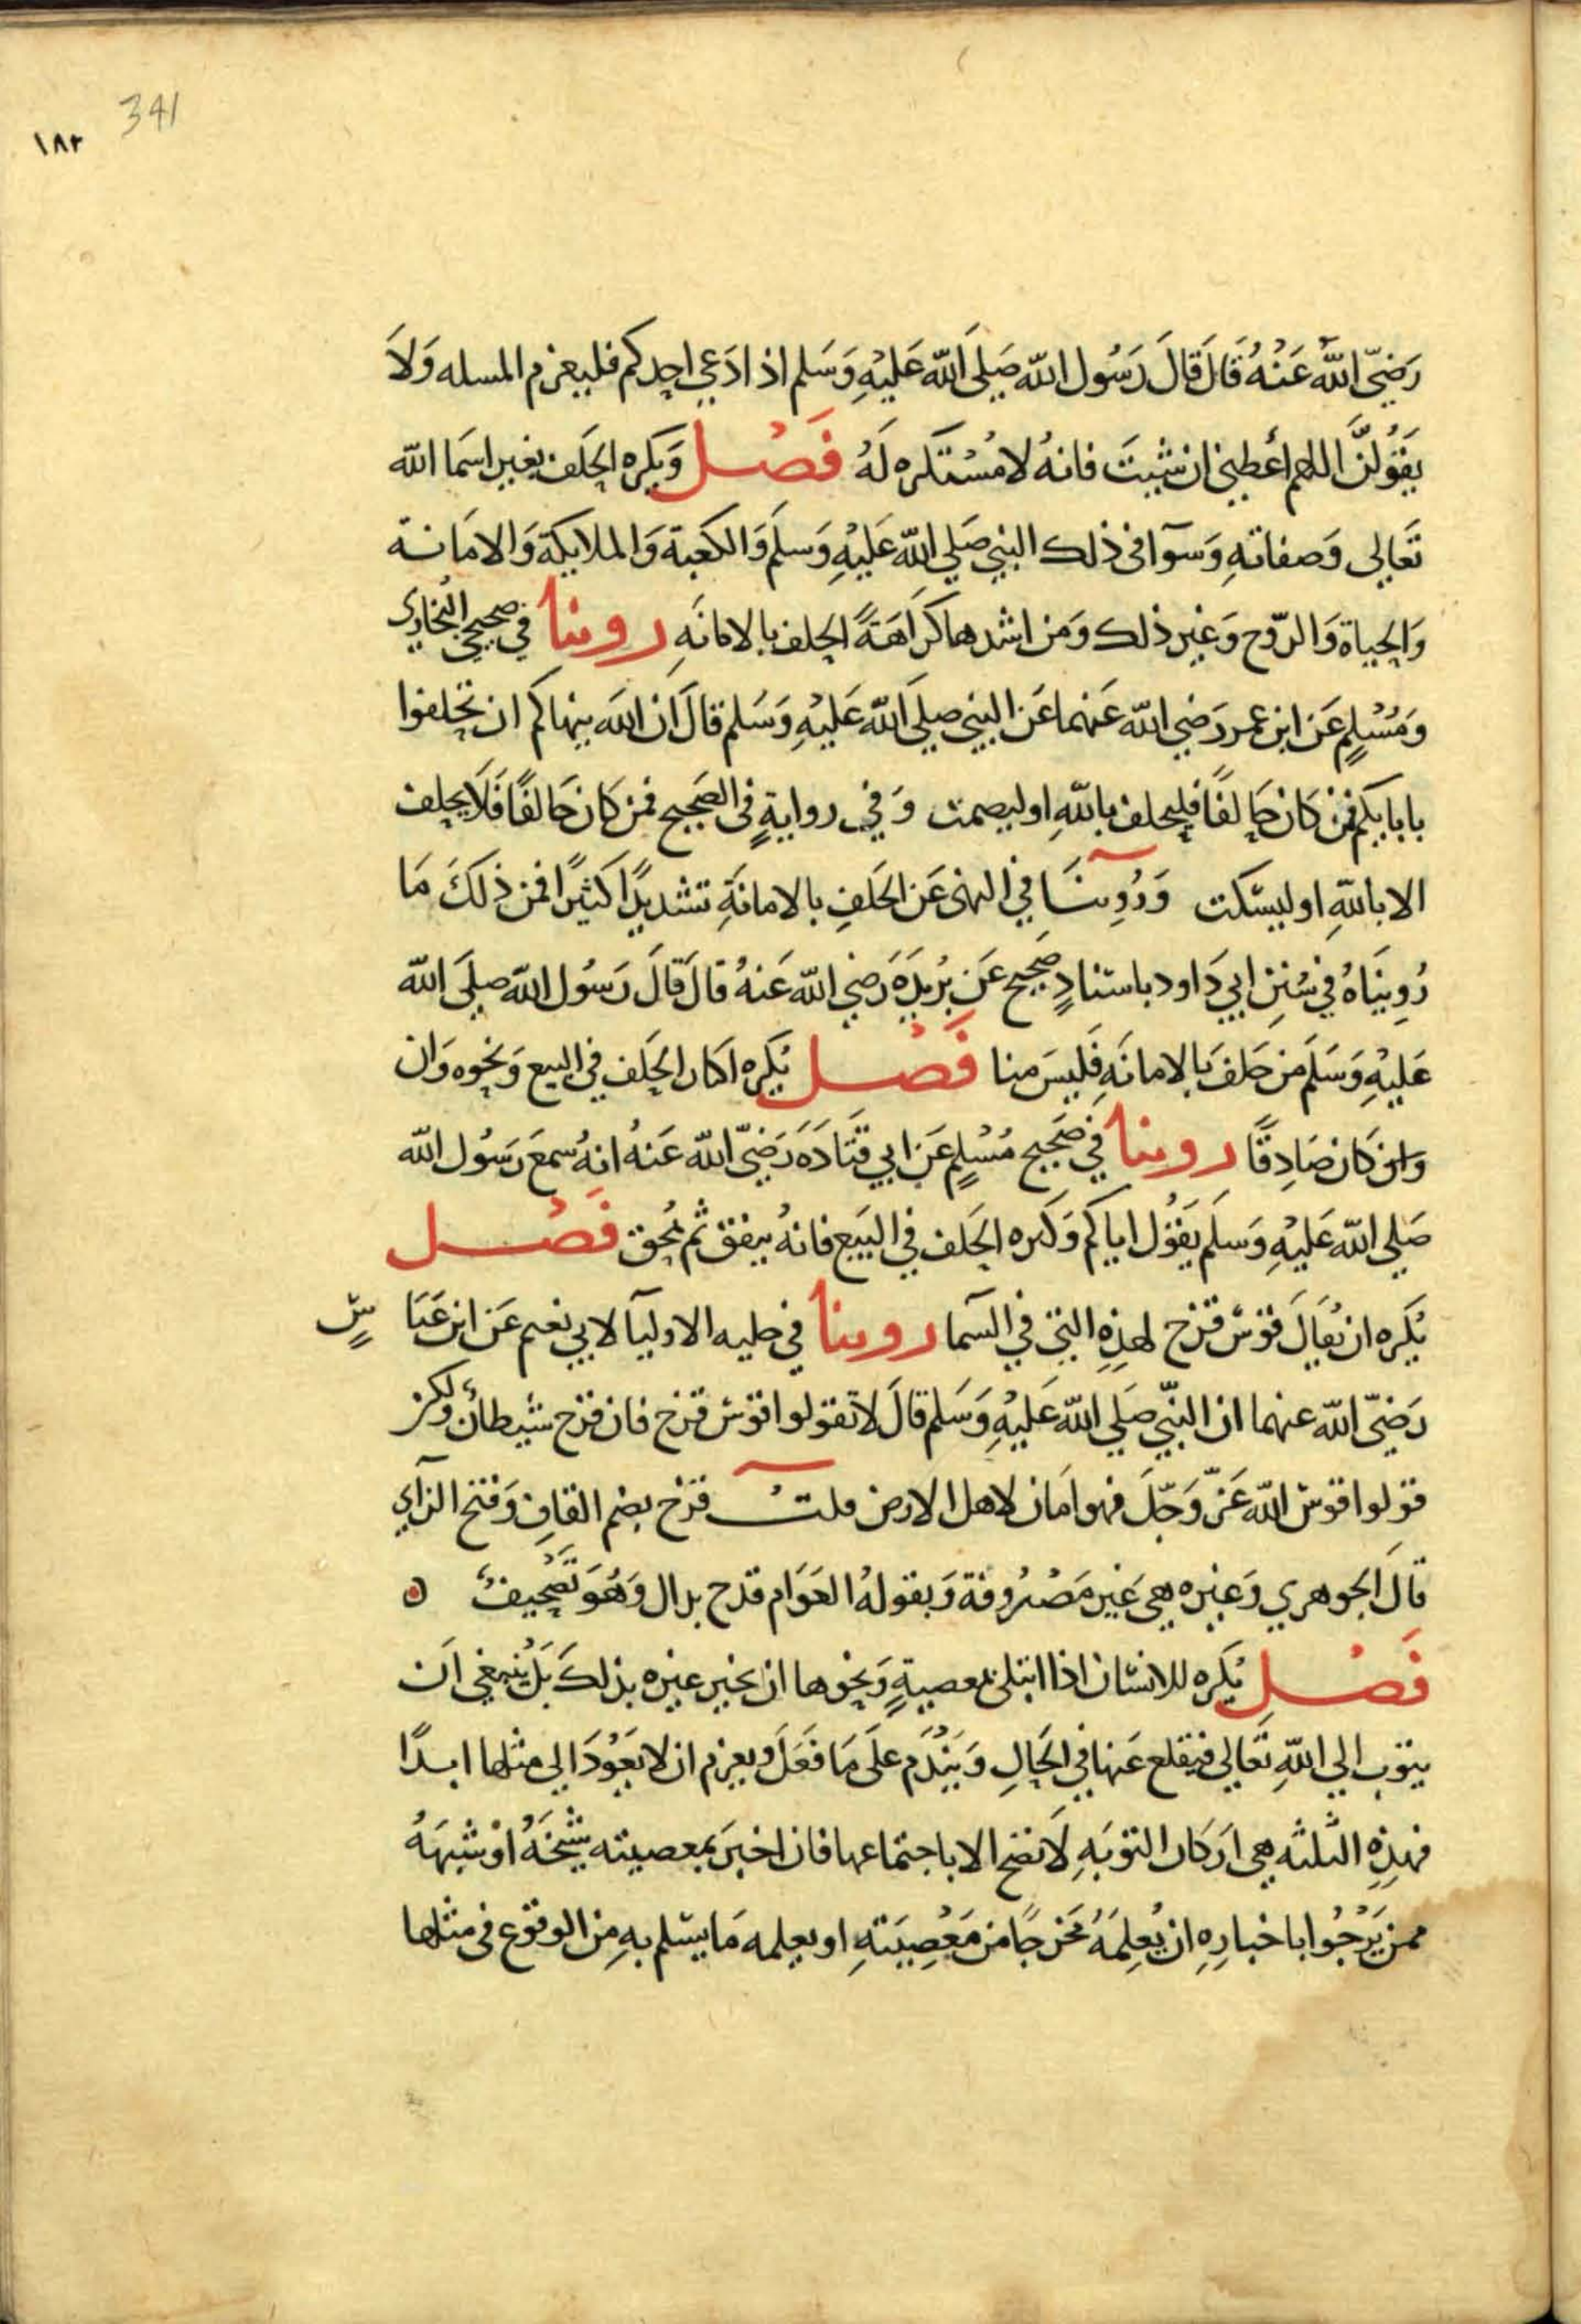 341
١٨٢
رَضِيَّ اللهُ عَنْهُ قَالَ قَالَ رَسُول الله صَلي الله عَلَيْهِ وَسَلم اذ ادَعي احدكم فليعزم المسله وَلاَ
يَقُولَنَّ اللهم أعطيني ان شيتَ فانهُ لا مُسْتكره لَهُ فَصْل وَيكره الحَلف بغير اسَما الله
تَعَالى وَصفاتهِ وَسَوآ فى ذلك النبي صَلي الله عَليْهِ وَسلم وَالكعبة وَالملايكة وَالامَانة
وَالحياة وَالروح وَغير ذلك وَمن اشدها كراهَةً الحلف بالامانَهِ روينا في صحيحي البُخاري
وَمُسْلِمٍ عَن ابن عمر رَضي الله عَنهما عَن النبي صلي الله عَليْهِ وَسَلم قالَ ان الله ينهاكم ان تحلفوا
بابايكم فمن كان حَالفًا فليحلف بالله اوليصمت وَفي روايةٍ فى الصَحيح فمن كان حَالفًا فَلَا يحلف
الا باللهِ اوليسكت وَرُوِينَا في النهى عَن الحَلفِ بالامانَةِ تشديدًا كثيرًا فمن ذلكَ مَا
رُوِينَاهُ في سُنَنِ ابي دَاود باسنادٍ صَحيح عَن بُريدَةَ رَضي الله عَنهُ قالَ قالَ رَسُول الله صلَى الله
عَليْهِ وَسَلَم مَن حَلفَ بالامانَهِ فَليسَ منا فَصْل يُكره اكثار الحَلف في البيع وَنحوه وَان
وَان كان صَادِقًا روينا في صَحيح مُسْلِمٍ عَن ابي قتَادَةَ رَضيَّ الله عَنهُ انهُ سمعَ رَسُول الله
صَلي الله عَليْهِ وَسلم يَقُول اياكم وَكثره الحَلف في البَيع فانهُ ينفق ثم يُمحق فَصْل
يُكره ان يُقالَ قوس قزح لهذِهِ التي في السَما روينا في حليه الاوليآ لابي نعيم عَن ابن عَبَا سٍ
رَضيّ الله عنهما ان النبّي صَلي الله عَليْهِ وَسَلم قالَ لا تقولوا قوس قزح فان قزح شيطانٌ ولكن
قولوا قوس الله عَزّ وَجّلَ فهو امَان لاهل الارض قلت قزح بضم القافِ وَفتح الزاي
قالَ الجوهري وَغيره هي غير مَصْرُوفة وَيقولهُ العَوَام قدح بدال وَهُوَ تَصْحِيفٌ
فَصْل يُكره للانسان اذا ابتلى بمعصيةٍ وَنحوها ان يخبر غيره بذلكَ بَل يَنبغي اَن
يتوب الي اللهِ تَعَالي فيقلع عَنها في الحَالِ وَيَنْدَم علَى مَا فَعَلَ ويعزم ان لا يَعُودَ الى مثلها ابدًا
فهذِهِ الثلثه هي ارَكان التوبَهِ لاَ تصح الا باجتماعها فان اخبرَ بمعصيته شَيْخَهُ اوْ شبهَهُ
ممن يَرْجُوا باخبارِهِ ان يُعلِمَهُ مَخرجًا من مَعْصِيَتهِ اويعلمه مَا يسلم بهِ مِن الوقوع فى مثلها